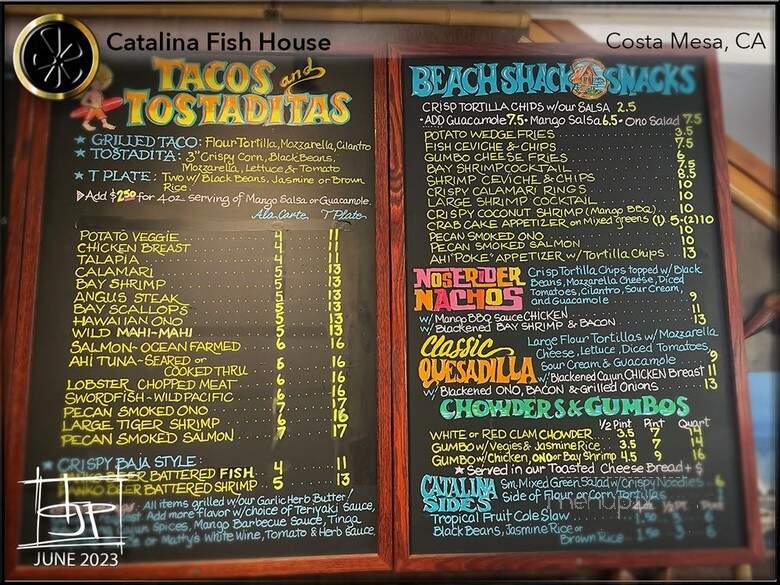 Catalina Fish House
Costa Mesa, CA
TACOS and
TOSTADITAS
★ GRILLED TACO: Flour Tortilla, Mozzarella, Cilantro
★ TOSTADITA: 3" Crispy Corn, Black Beans,
Mozzarella, Lettuce & Tomato
★ T PLATE: Two w/ Black Beans, Jasmine or Brown
Rice
▷Add $2.50 for 4oz. serving of Mango Salsa or Guacamole
Ala Carte T Plate
POTATO VEGGIE 4 11
CHICKEN BREAST 4 11
TALAPIA 4 11
CALAMARI 5 13
BAY SHRIMP 5 13
ANGUS STEAK 5 13
BAY SCALLOPS 5 13
HAWAIIAN ONO 5 13
WILD MAHI-MAHI 5 13
SALMON-OCEAN FARMED 6 16
AHI TUNA-SEARED or
COOKED THRU 6 16
LOBSTER CHOPPED MEAT 6 16
SWORDFISH-WILD PACIFIC 6 16
PECAN SMOKED ONO 7 17
LARGE TIGER SHRIMP 6 16
PECAN SMOKED SALMON 7 17
★ CRISPY BAJA STYLE:
BEER BATTERED FISH 4 11
BEER BATTERED SHRIMP 5 13
All items grilled w/our Garlic Herb Butter/
Add more flavor w/choice of Teriyaki Sauce,
& Spices, Mango Barbecue Sauce, Tinga
or Matty's White Wine, Tomato & Herb Sauce
SJP
JUNE 2023
BEACH SHACK SNACKS
CRISP TORTILLA CHIPS w/our SALSA 2.5
•ADD Guacamole 7.5 • Mango Salsa 6.5 • Ono Salad 7.5
POTATO WEDGE FRIES 3.5
FISH CEVICHE & CHIPS 7.5
GUMBO CHEESE FRIES 6
BAY SHRIMP COCKTAIL 7.5
SHRIMP CEVICHE & CHIPS 8.5
CRISPY CALAMARI RINGS 10
LARGE SHRIMP COCKTAIL 10
CRISPY COCONUT SHRIMP (Mango BBQ) 10
CRAB CAKE APPETIZER on Mixed greens (1) 5-(2) 10
PECAN SMOKED ONO 10
PECAN SMOKED SALMON 10
AHI "POKE" APPETIZER w/ Tortilla Chips 13
NOSERIDER
NACHOS
Crisp Tortilla Chips topped w/ Black
Beans, Mozzarella Cheese, Diced
Tomatoes, Cilantro, Sour Cream,
and Guacamole 9
w/ Mango BBQ Sauce CHICKEN 11
w/ Blackened BAY SHRIMP & BACON 13
Classic
QUESADILLA
Large Flour Tortillas w/ Mozzarella
Cheese, Lettuce, Diced Tomatoes,
Sour Cream & Guacamole 9
w/ Blackened Cajun CHICKEN Breast 11
w/ Blackened ONO, BACON & Grilled Onions 13
CHOWDERS & GUMBOS
1/2 Pint Pint Quart
WHITE or RED CLAM CHOWDER 3.5 7 14
GUMBO w/ Vegies & Jasmine Rice 3.5 7 14
GUMBO w/Chicken, ONO or Bay Shrimp 4.5 9 16
★ Served in our Toasted Cheese Bread + $
CATALINA
SIDES
Sm. Mixed Green Salad w/ Crispy Noodles 6
Side of Flour or Corn Tortillas
menupix
Tropical Fruit Cole Slaw
Black Beans, Jasmine Rice or
Brown Rice 1.50 3 6